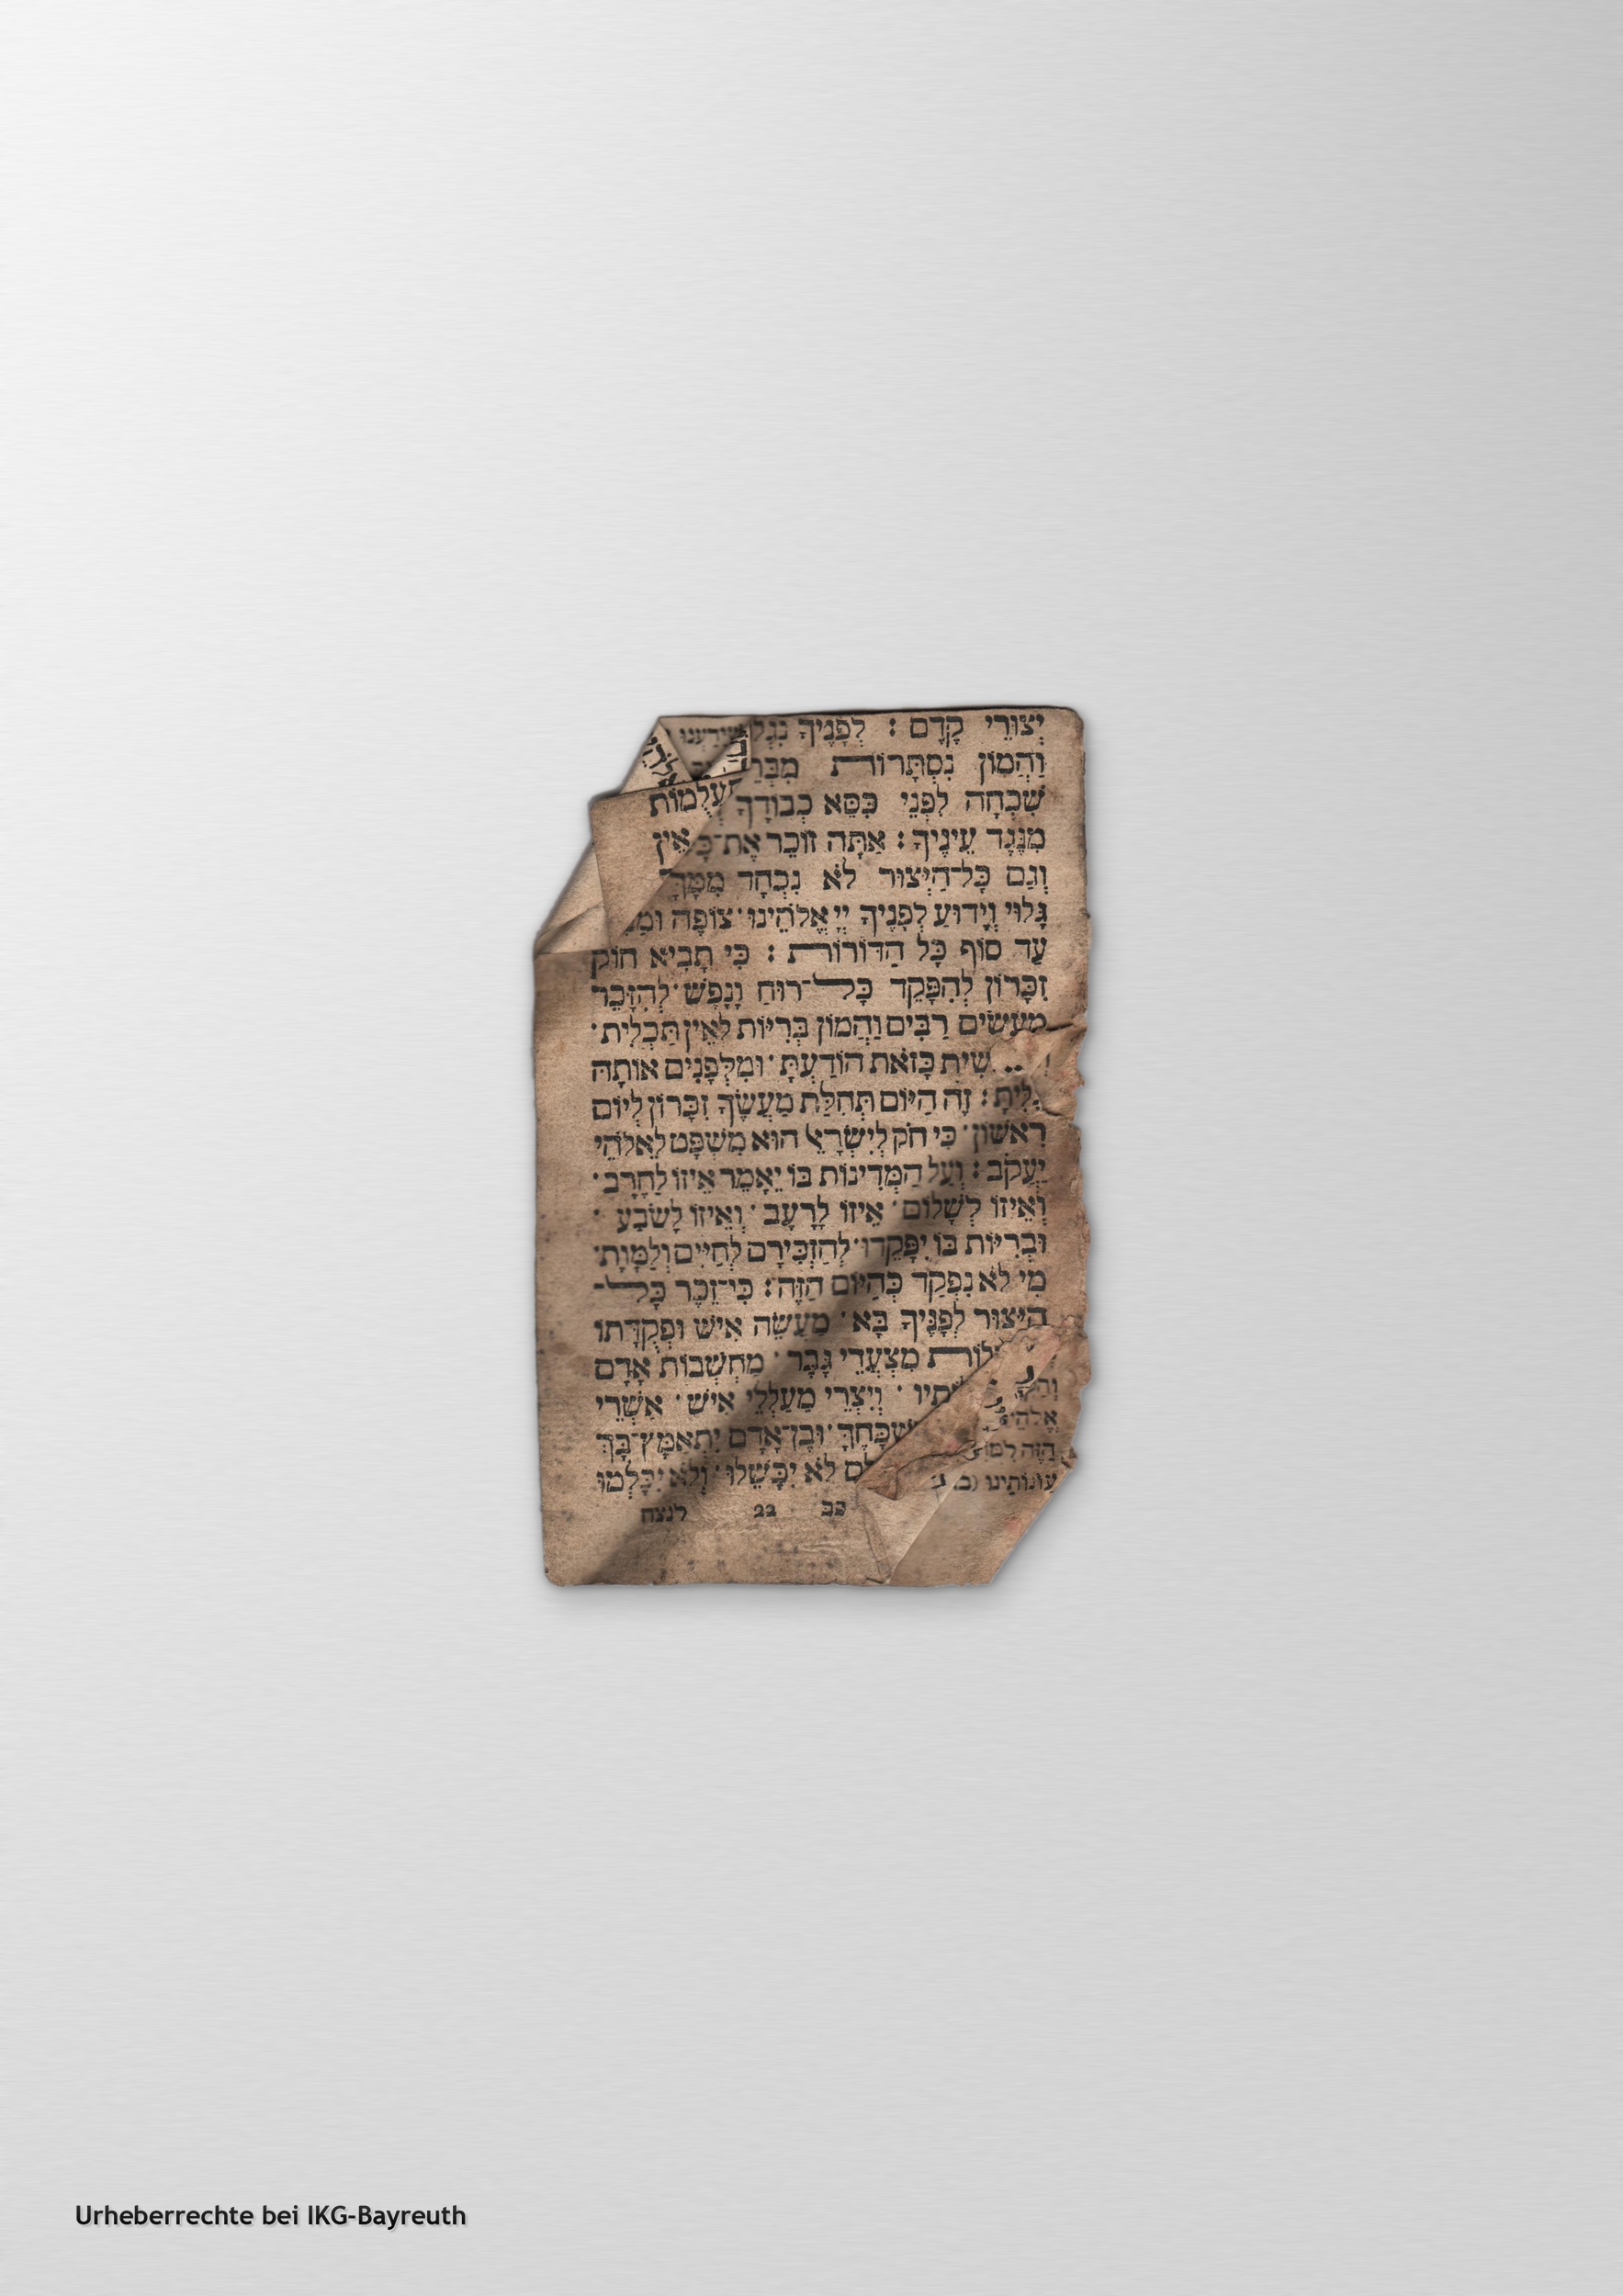 יְצוּרֵי קֶדֶם : לְפָנֶיךָ נִגְל
וַהֲמוֹן נִסְתָּרוֹת
שִׁכְחָה לִפְנֵי כִּסֵּא כְבוֹדֶךָ
עֲלֻמוֹת
מִנֶּגֶד עֵינֶיךָ : אַתָּה זוֹכֵר אֶת־
אֵין
וְגַם כָּל־הַיְצוּר לֹא נִכְחָד מִמֶּךָּ
גָּלוּי וְיָדוּעַ לְפָנֶיךָ יְיָ אֱלֹהֵינוּ · צוֹפֶה
עַד סוֹף כָּל הַדּוֹרוֹת : כִּי תָבִיא חוֹק
זִכָּרוֹן לְהִפָּקֵד כָּל־רוּחַ וָנָפֶשׁ · לְהִזָּכֵר
מַעֲשִׂים רַבִּים וַהֲמוֹן בְּרִיּוֹת לְאֵין תַּכְלִית ·
שִׁית כָּזֹאת הוֹדַעְתָּ · וּמִלְּפָנִים אוֹתָהּ
לִּיתָ : זֶה הַיּוֹם תְּחִלַּת מַעֲשֶׂיךָ זִכָּרוֹן לְיוֹם
רִאשׁוֹן · כִּי חֹק לְיִשְׂרָאֵל הוּא מִשְׁפָּט לֵאלֹהֵי
יַעֲקֹב : וְעַל הַמְּדִינוֹת בּוֹ יֵאָמֵר אֵיזוֹ לַחֶרֶב ·
וְאֵיזוֹ לְשָׁלוֹם · אֵיזוֹ לָרָעָב · וְאֵיזוֹ לָשׂבַע ·
וּבְרִיּוֹת בּוֹ יִפָּקֵדוּ · לְהַזְכִּירָם לְחַיִּים וְלַמָּוֶת ·
מִי לֹא נִפְקַד כְּהַיּוֹם הַזֶּה : כִּי־זֵכֶר כָּל־
הַיְצוּר לְפָנֶיךָ בָּא · מַעֲשֵׂה אִישׁ וּפְקֻדָּתוֹ
לוֹת מִצְעֲדֵי גָבֶר · מַחְשְׁבוֹת אָדָם
תָיו · וְיִצְרֵי מַעַלְלֵי אִישׁ · אַשְׁרֵי
שְׁכָּחֶךָּ · וּבֶן־אָדָם יִתְאַמֶּץ־בָּךְ
לֹא יִכָּשֵׁלוּ · וְלֹא יִכָּלְמוּ
כב 22 לנצח
Urheberrechte bei IKG-Bayreuth